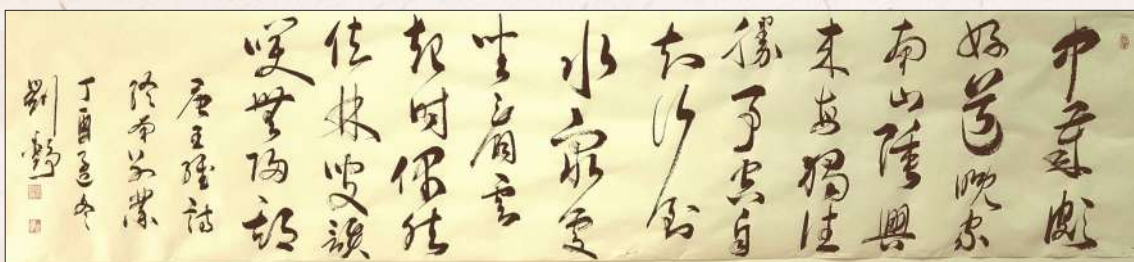 中歲頗
好道晚家
南山陲興
来每獨往
勝事空自
知行到
水窮處
坐看雲
起時偶然
值林叟談
咲無期
唐王維詩
終南別業
丁酉冬
劉